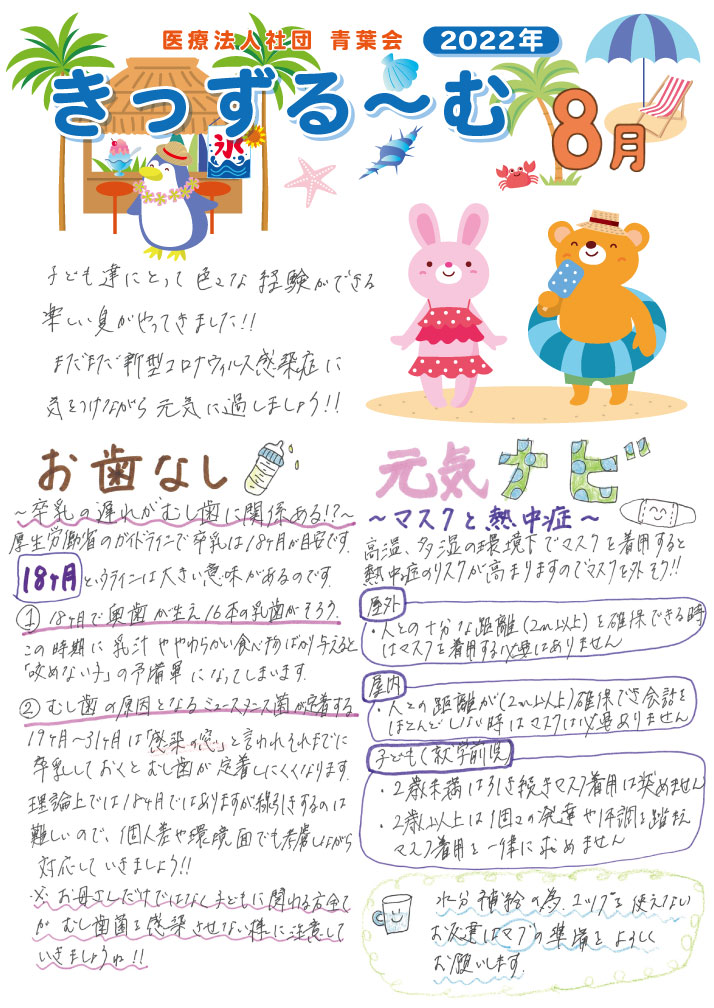 医療法人社団 青葉会 2022年
きっずる〜む
8月
氷
子ども達にとって色々な経験ができる
楽しい夏がやってきました!!
まだまだ新型コロナウィルス感染症に
気をつけながら元気に過しましょう!!
お歯なし
〜卒乳の遅れがむし歯に関係ある!?〜
厚生労働省のガイドラインで卒乳は18ヶ月が目安です.
18ヶ月というラインは大きい意味があるのです.
① 18ヶ月で奥歯が生え16本の乳歯がそろう.
この時期に乳汁ややわらかい食べ物ばかり与えると
「咬めない子」の予備軍になってしまいます.
② むし歯の原因となるミュータンス菌が定着する
19ヶ月〜31ヶ月は「感染の窓」と言われそれまでに
卒乳しておくとむし歯が定着しにくくなります.
理論上では18ヶ月ではありますが線引きするのは
難しいので、個人差や環境面でも考慮しながら
対応していきましょう!!
※ お母さんだけではなく子どもに関わる方全て
が むし歯菌を感染させない様に注意して
いきましょうね!!
元気ナビ
〜マスクと熱中症〜
高温、多湿の環境下でマスクを着用すると
熱中症のリスクが高まりますのでマスクを外そう!!
屋外
・人との十分な距離(2m以上)を確保できる時
はマスクを着用する必要はありません
屋内
・人との距離が(2m以上)確保でき会話を
ほとんどしない時はマスクは必要ありません
子ども(就学前児
・2歳未満は引き続きマスク着用は奨めません
・2歳以上は個々の発達や体調を踏まえ
マスク着用を一律に求めません
水分補給の為、コップを使えない
お友達はマグの準備をよろしく
お願いします.